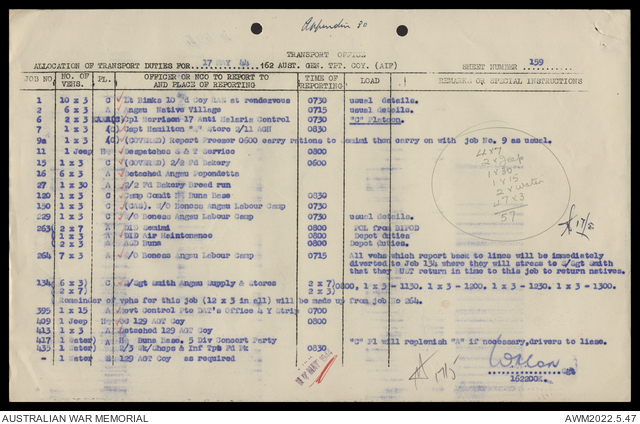 Appendix 30
TRANSPORT OFFICE
ALLOCATION OF TRANSPORT DUTIES FOR 17 MAY 44 162 AUST. GEN. TPT. COY. (AIF) SHEET NUMBER 159
JOB NO. NO. OF VEHS. PL. OFFICER OR NCO TO REPORT TO AND PLACE OF REPORTING TIME OF REPORTING LOAD REMARKS OR SPECIAL INSTRUCTIONS
1 10 x 3 C Lt Hinks 10 Fd Coy RAE at rendezvous 0730 usual details.
2 6 x 3 A Angau Native Village 0715 usual details.
6 2 x 3 (C) Cpl Harrison 17 Anti Malaria Control 0730 "G" Platoon.
7 1 x 3 (C) Capt Hamilton Store 2/11 AGH 0830
9a (C) (COVERED) Report Freezer 0600 carry rations to Semimi then carry on with job No. 9 as usual.
11 1 Jeep Hq Despatches A & T Service 0800
15 1 x 3 C (COVERED) 2/2 Fd Bakery 0600
16 6 x 3 A Detached Angau Popondetta
27 1 x 30 A 2/2 Fd Bakery Bread run
120 1 x 3 C Camp Comdt Hq Buna Base 0830
150 1 x 3 C (GMS). E/O Boness Angau Labour Camp 0730
229 1 x 3 C E/O Boness Angau Labour Camp 0730 usual details.
263 2 x 7 A DID Semimi 0800 POL from BIPOD
1 x 3 A DID Air Maintenance 0800 Depot duties
2 x 3 A AGD Buna 0800 Depot duties.
264 7 x 3 A E/O Boness Angau Labour Camp 0715 All vehs which report back to lines will be immediately
diverted to Job 134 where they will stress to S/Sgt Smith
that they MUST return in time to this job to return natives.
134 6 x 3) C S/Sgt Smith Angau Supply & Stores 2 x 7) 0800, 1 x 3 - 1130. 1 x 3 - 1200. 1 x 3 - 1230. 1 x 3 - 1300.
2 x 7) 2 x 3)
Remainder of vehs for this job (12 x 3 in all) will be made up from job No 264.
395 1 x 15 A Movt Control Pte Office 4 Y Strip 0700
409 1 Jeep Hq OC 129 AGT Coy 0800
413 1 x 3 A Detached 129 AGT Coy
417 1 Water) Hq Buna Base. 5 Div Concert Party "C" Pl will replenish "A" if necessary, drivers to liase.
435 1 Water) 2/3 Wk/Shops & Inf Tpt Fd Pk 0830
- 1 Water 129 AGT Coy as required
4 x 7
2 x Jeep
1 x 30
1 x 15
2 x Water
47 x 3
57
17/5
17/5
17 MAY 1944
162COY
AUSTRALIAN WAR MEMORIAL AWM2022.5.47